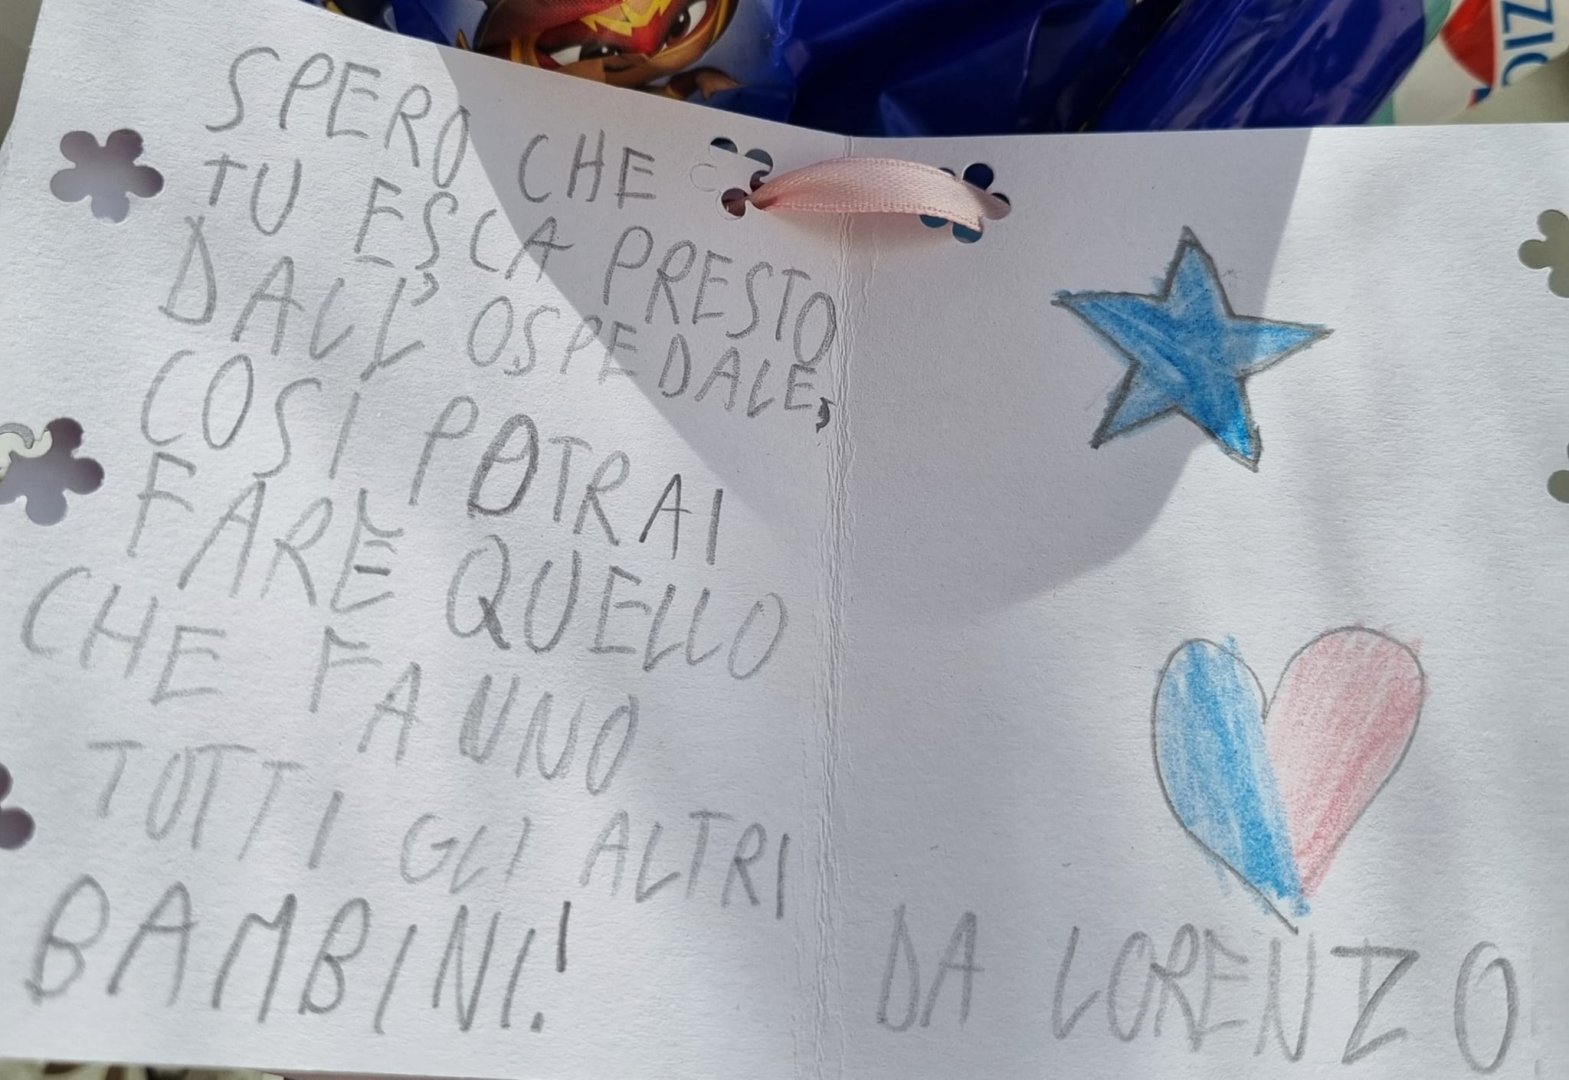 SPERO CHE
TU ESCA PRESTO
DALL'OSPEDALE,
COSI POTRAI
FARE QUELLO
CHE FANNO
TUTTI GLI ALTRI
BAMBINI!
DA LORENZO
ZIO